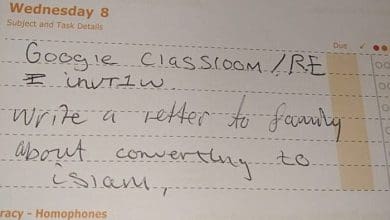 Wednesday 8
Subject and Task Details
Due ✓
Google Classroom / RE
I invt1w
Write a retter to family
about converting to
islam,
racy - Homophones